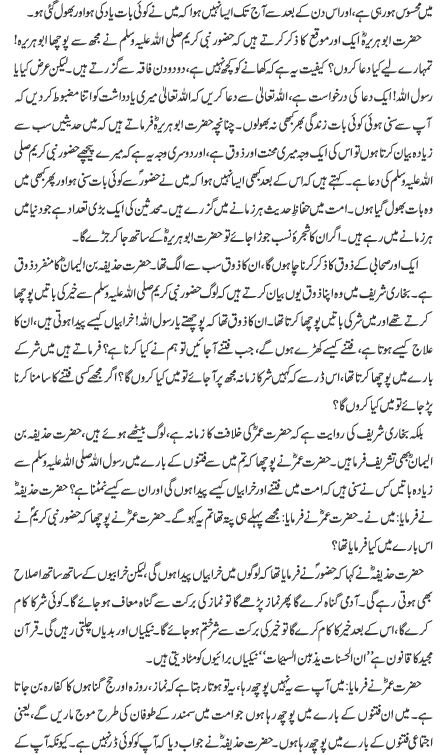 میں محسوس ہو رہی ہے، اور اس دن کے بعد سے آج تک ایسا نہیں ہوا کہ میں نے کوئی بات یاد کی ہو اور بھول گئی ہو۔
حضرت ابو ہریرہؓ ایک اور موقع کا ذکر کرتے ہیں کہ حضور نبی کریم صلی اللہ علیہ وسلم نے مجھ سے پوچھا ابو ہریرہ!
تمہارے لیے کیا دعا کروں؟ کیفیت یہ ہے کہ کھانے کو کچھ نہیں ہے، دو دو دن فاقہ سے گزرتے ہیں۔ لیکن عرض کیا یا
رسول اللہ! ایک دعا کی درخواست ہے، اللہ تعالیٰ سے دعا کریں کہ اللہ تعالیٰ میری یادداشت کو اتنا مضبوط کر دیں کہ
آپ سے سنی ہوئی کوئی بات زندگی بھر کبھی نہ بھولوں۔ چنانچہ حضرت ابو ہریرہؓ فرماتے ہیں کہ میں حدیثیں سب سے
زیادہ بیان کرتا ہوں تو اس کی ایک وجہ میری محنت اور ذوق ہے، اور دوسری وجہ یہ ہے کہ میرے پیچھے حضور نبی کریم صلی
اللہ علیہ وسلم کی دعا ہے۔ کہتے ہیں کہ اس کے بعد کبھی ایسا نہیں ہوا کہ میں نے حضورؐ سے کوئی بات سنی ہو اور پھر کبھی میں
وہ بات بھول گیا ہوں۔ امت میں حفاظِ حدیث ہر زمانے میں گزرے ہیں۔ محدثین کی ایک بڑی تعداد ہے جو دنیا میں
ہر زمانے میں رہے ہیں۔ اگر ان کا شجرۂ نسب جوڑا جائے تو حضرت ابو ہریرہؓ کے ساتھ جا کر جڑے گا۔
ایک اور صحابی کے ذوق کا ذکر کرنا چاہوں گا، ان کا ذوق سب سے الگ تھا۔ حضرت حذیفہ بن الیمانؓ کا منفرد ذوق
ہے۔ بخاری شریف میں وہ اپنا ذوق یوں بیان کرتے ہیں کہ لوگ حضور نبی کریم صلی اللہ علیہ وسلم سے خیر کی باتیں پوچھا
کرتے تھے اور میں شر کی باتیں پوچھا کرتا تھا۔ ان کا ذوق تھا کہ پوچھتے یا رسول اللہ! خرابیاں کیسے پیدا ہوتی ہیں، ان کا
علاج کیسے ہوتا ہے، فتنے کیسے کھڑے ہوں گے، جب فتنے آجائیں تو ہم نے کیا کرنا ہے؟ فرماتے ہیں میں شر کے
بارے میں پوچھا کرتا تھا، اس ڈر سے کہ کہیں شر کا زمانہ مجھ پر آ جائے تو میں کیا کروں گا؟ اگر مجھے کسی فتنے کا سامنا کرنا
پڑ جائے تو میں کیا کروں گا؟
بلکہ بخاری شریف کی روایت ہے کہ حضرت عمرؓ کی خلافت کا زمانہ ہے، لوگ بیٹھے ہوئے ہیں، حضرت حذیفہ بن
الیمانؓ بھی تشریف فرما ہیں۔ حضرت عمرؓ نے پوچھا کہ تم میں سے فتنوں کے بارے میں رسول اللہ صلی اللہ علیہ وسلم سے
زیادہ باتیں کس نے سنی ہیں کہ امت میں فتنے اور خرابیاں کیسے پیدا ہوں گی اور ان سے کیسے نمٹنا ہے؟ حضرت حذیفہؓ
نے فرمایا: میں نے۔ حضرت عمرؓ نے فرمایا: مجھے پہلے ہی پتہ تھا تم یہ کہو گے۔ حضرت عمرؓ نے پوچھا کہ حضور نبی کریمؐ نے
اس بارے میں کیا فرمایا تھا؟
حضرت حذیفہؓ نے کہا کہ حضورؐ نے فرمایا تھا کہ لوگوں میں خرابیاں پیدا ہوں گی لیکن خرابیوں کے ساتھ ساتھ اصلاح
بھی ہوتی رہے گی۔ آدمی گناہ کرے گا پھر نماز پڑھے گا تو نماز کی برکت سے گناہ معاف ہو جائے گا۔ کوئی شر کا کام
کرے گا، اس کے بعد خیر کا کام کرے گا تو خیر کی برکت سے شر ختم ہو جائے گا۔ نیکیاں اور بدیاں چلتی رہیں گی۔ قرآن
مجید کا قانون ہے ’’ان الحسنات یذھبن السیئات‘‘ نیکیاں برائیوں کو مٹا دیتی ہیں۔
حضرت عمرؓ نے فرمایا: میں آپ سے یہ نہیں پوچھ رہا، یہ تو ہوتا رہتا ہے کہ نماز، روزہ اور حج گناہوں کا کفارہ بن جاتا
ہے۔ میں ان فتنوں کے بارے میں پوچھ رہا ہوں جو امت میں سمندر کے طوفان کی طرح موج ماریں گے، یعنی
اجتماعی فتنوں کے بارے میں پوچھ رہا ہوں۔ حضرت حذیفہؓ نے جواب دیا کہ آپ کو کوئی ڈر نہیں ہے۔ کیونکہ آپ کے